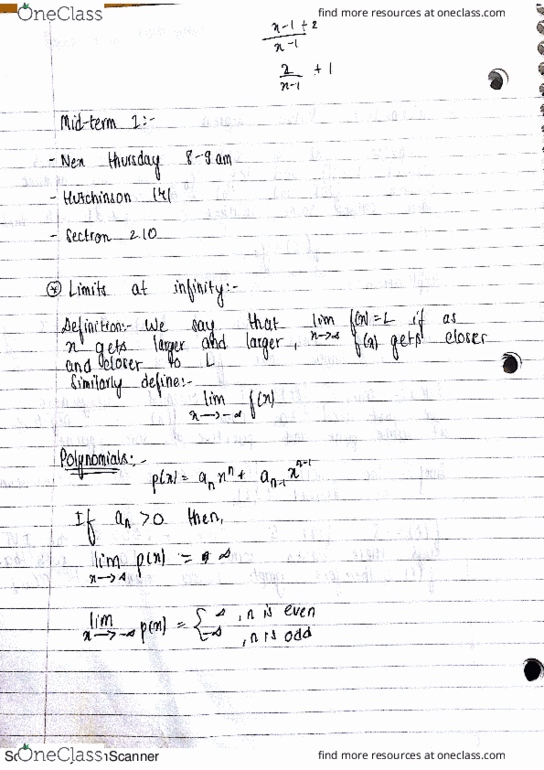 OneClass
find more resources at oneclass.com
x-1+2
x-1
2/x-1 + 1
Mid-term 1:-
- Nex thursday 8-9am
- Hutchinson 141
- Section 2.10
* Limits at infinity:-
Definition:- We say that lim x→∞ f(x)=L if as
x gets larger and larger, f(x) gets closer
and closer to L
Similarly define:-
lim x→-∞ f(x)
Polynomials:-
p(x) = aₙxⁿ + aₙ₋₁xⁿ⁻¹
If aₙ >0 then,
lim x→∞ p(x) = ∞
lim x→-∞ p(x) = { ∞, n is even
-∞, n is odd
OneClass
Scanner
find more resources at oneclass.com